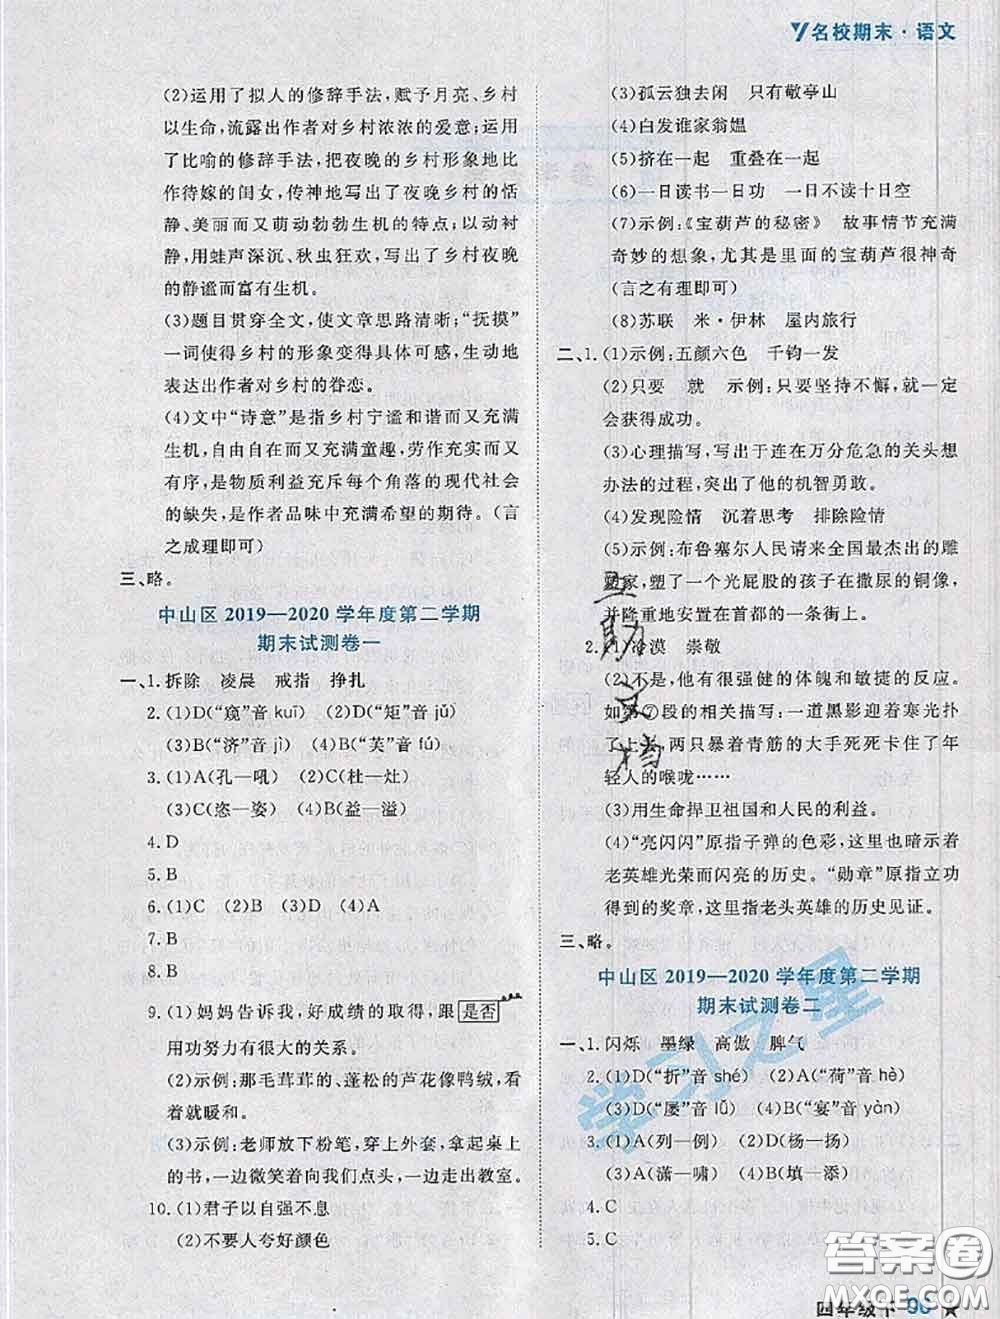 名校期末·语文
(2)运用了拟人的修辞手法,赋予月亮、乡村
以生命,流露出作者对乡村浓浓的爱意;运
用了比喻的修辞手法,把夜晚的乡村形象地比
作待嫁的闺女,传神地写出了夜晚乡村的恬
静、美丽而又萌动勃勃生机的特点;以动衬
静,用蛙声深沉、秋虫狂欢,写出了乡村夜晚
的静谧而富有生机。
(3)题目贯穿全文,使文章思路清晰;“抚摸”
一词使得乡村的形象变得具体可感,生动地
表达出作者对乡村的眷恋。
(4)文中“诗意”是指乡村宁谧和谐而又充满
生机,自由自在而又充满童趣,劳作充实而又
有序,是物质利益充斥每个角落的现代社会
的缺失,是作者品味中充满希望的期待。(言
之成理即可)
三、略。
中山区 2019—2020 学年度第二学期
期末试测卷一
一、1. 拆除 凌晨 戒指 挣扎
2. (1)D(“窥”音 kuī) (2)D(“矩”音 jǔ)
(3)B(“济”音 jì) (4)B(“芙”音 fú)
3. (1)A(孔—吼) (2)C(杜—灶)
(3)C(恣—姿) (4)B(益—溢)
4. D
5. B
6. (1)C (2)B (3)D (4)A
7. B
8. B
9. (1)妈妈告诉我,好成绩的取得,跟是否
用功努力有很大的关系。
(2)示例:那毛茸茸的、蓬松的芦花像鸭绒,看
着就暖和。
(3)示例:老师放下粉笔,穿上外套,拿起桌上
的书,一边微笑着向我们点头,一边走出教室。
10. (1)君子以自强不息
(2)不要人夸好颜色
(3)孤云独去闲 只有敬亭山
(4)白发谁家翁媪
(5)挤在一起 重叠在一起
(6)一日读书一日功 一日不读十日空
(7)示例:《宝葫芦的秘密》 故事情节充满
奇妙的想象,尤其是里面的宝葫芦很神奇
(言之有理即可)
(8)苏联 米·伊林 屋内旅行
二、1. (1)示例:五颜六色 千钧一发
(2)只要 就 示例:只要坚持不懈,就一定
会获得成功。
(3)心理描写,写出了他在万分危急的关头想
办法的过程,突出了他的机智勇敢。
(4)发现险情 沉着思考 排除险情
(5)示例:布鲁塞尔人民请来全国最杰出的雕
塑家,塑了一个光屁股的孩子在撒尿的铜像,
并隆重地安置在首都的一条街上。
2. (1)冷漠 崇敬
(2)不是,他有很强健的体魄和敏捷的反应。
如第⑦段的相关描写:一道黑影迎着寒光扑
了上去,两只暴着青筋的大手死死卡住了年
轻人的喉咙……
(3)用生命捍卫祖国和人民的利益。
(4)“亮闪闪”原指子弹的色彩,这里也暗示着
老英雄光荣而闪亮的历史。“勋章”原指立功
得到的奖章,这里指老头英雄的历史见证。
三、略。
中山区 2019—2020 学年度第二学期
期末试测卷二
一、1. 闪烁 墨绿 高傲 脾气
2. (1)D(“折”音 shé) (2)A(“荷”音 hè)
(3)D(“屡”音 lǚ) (4)B(“宴”音 yàn)
3. (1)A(列—例) (2)D(杨—扬)
(3)A(潇—啸) (4)B(填—添)
4. C
5. C
学习之星
答案圈
MXQE.COM
四年级下 96